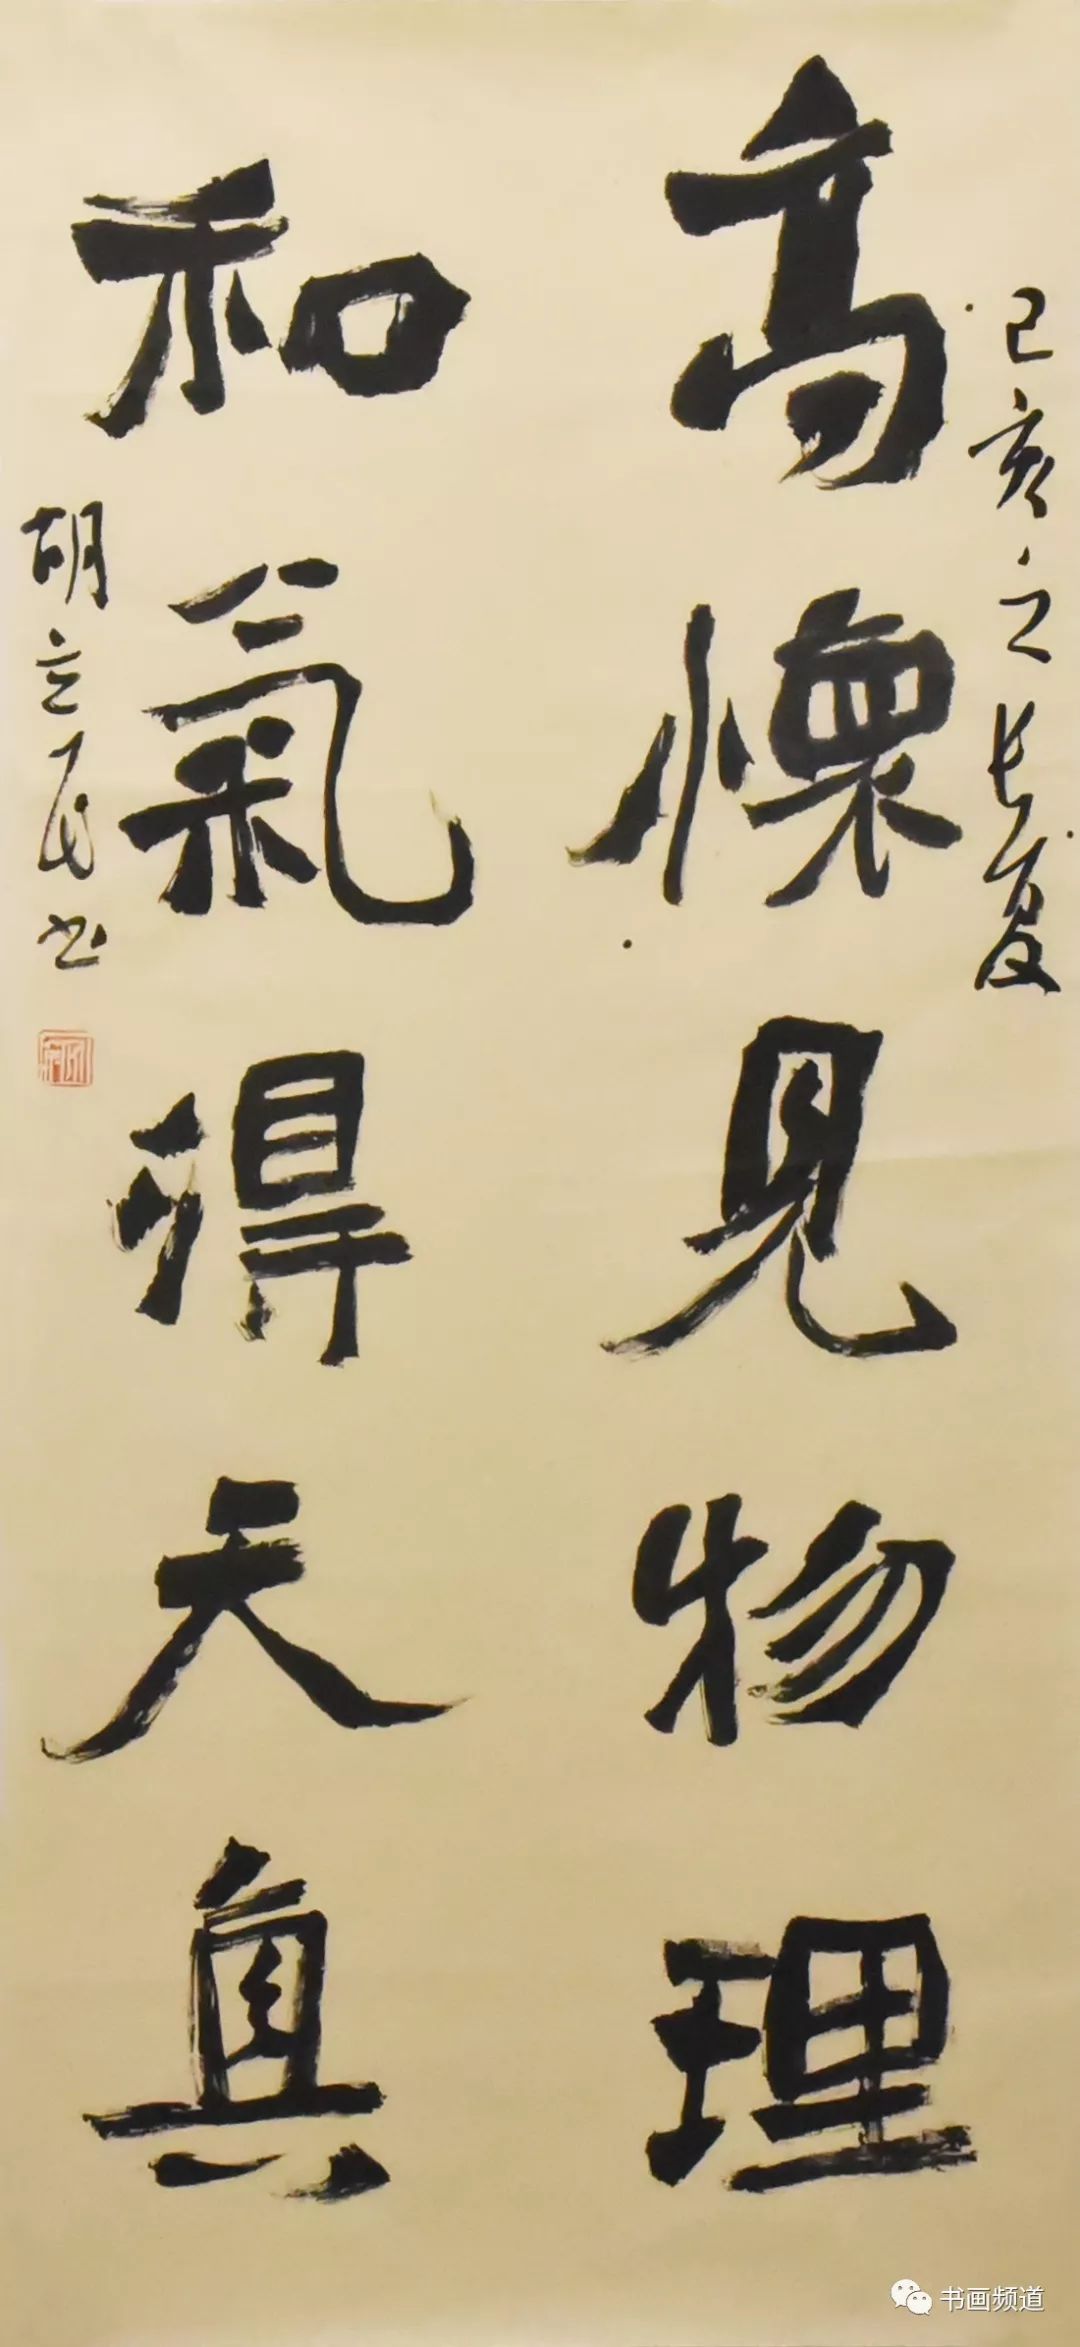 己亥之长夏
高懷見物理
和氣得天真
胡立民书
书画频道